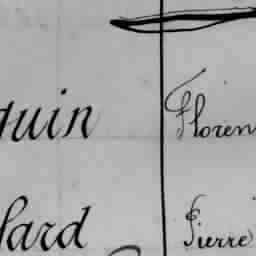 quin Floren
lard Pierre